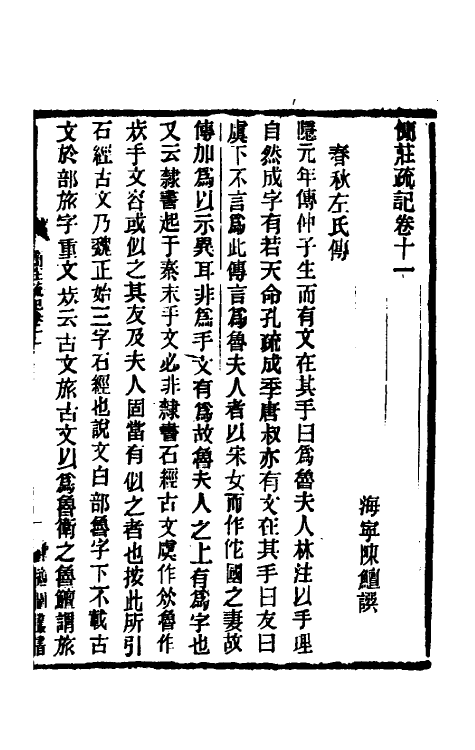 簡莊疏記卷十一
海寧陳鱣譔
春秋左氏傳
隱元年傳仲子生而有文在其手曰爲魯夫人林注以手理
自然成字有若天命孔疏成季唐叔亦有文在其手曰友曰
虞下不言爲此傳言爲魯夫人者以宋女而作佗國之妻故
傳加爲以示異耳非爲手文有爲故魯夫人之上有爲字也
又云隸書起于秦末手文必非隸書石經古文虞作㷼魯作
𣥐手文容或似之其友及夫人固當有似之者也按此所引
石經古文乃魏正始三字石經也說文白部魯字下不載古
文於部旅字重文𣥐云古文旅古文以爲魯衛之魯鱣謂旅